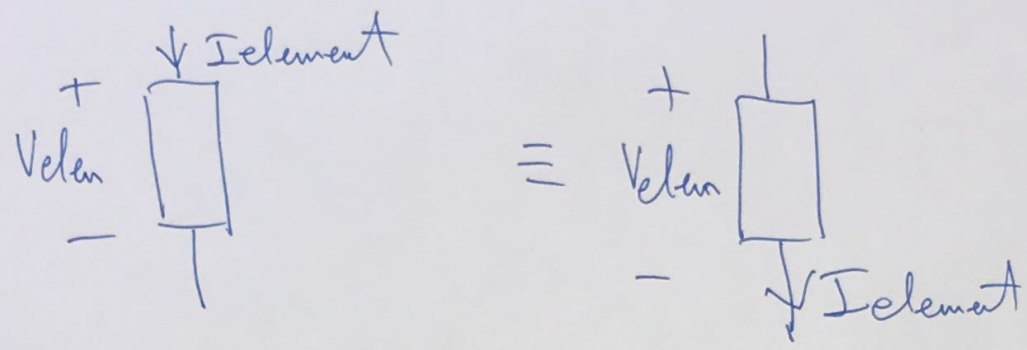 Ielement
+
Velem
-
≡
+
Velem
-
Ielement